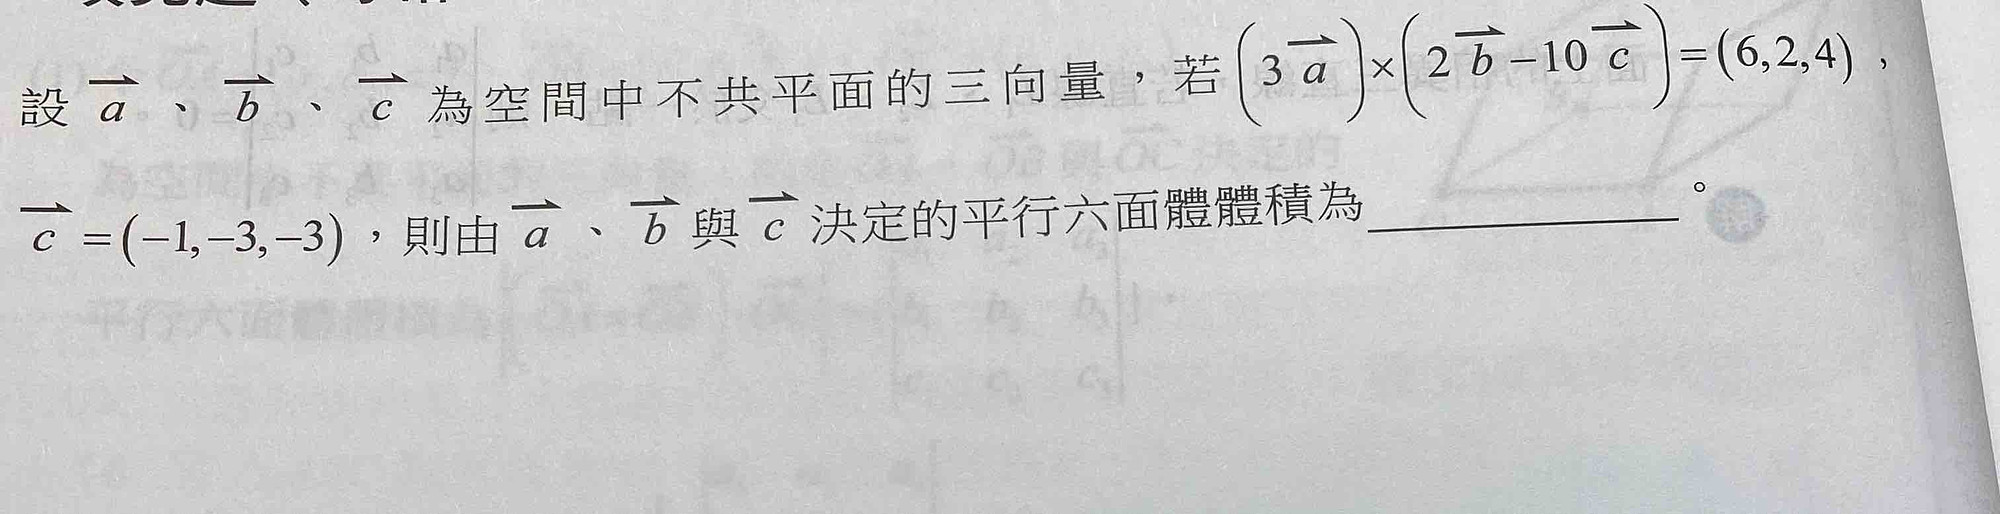 設 a⃗、b⃗、c⃗ 為空間中不共平面的三向量，若(3a⃗)×(2b⃗−10c⃗)=(6,2,4)，
c⃗=(−1,−3,−3)，則由 a⃗、b⃗ 與 c⃗ 決定的平行六面體體積為________。